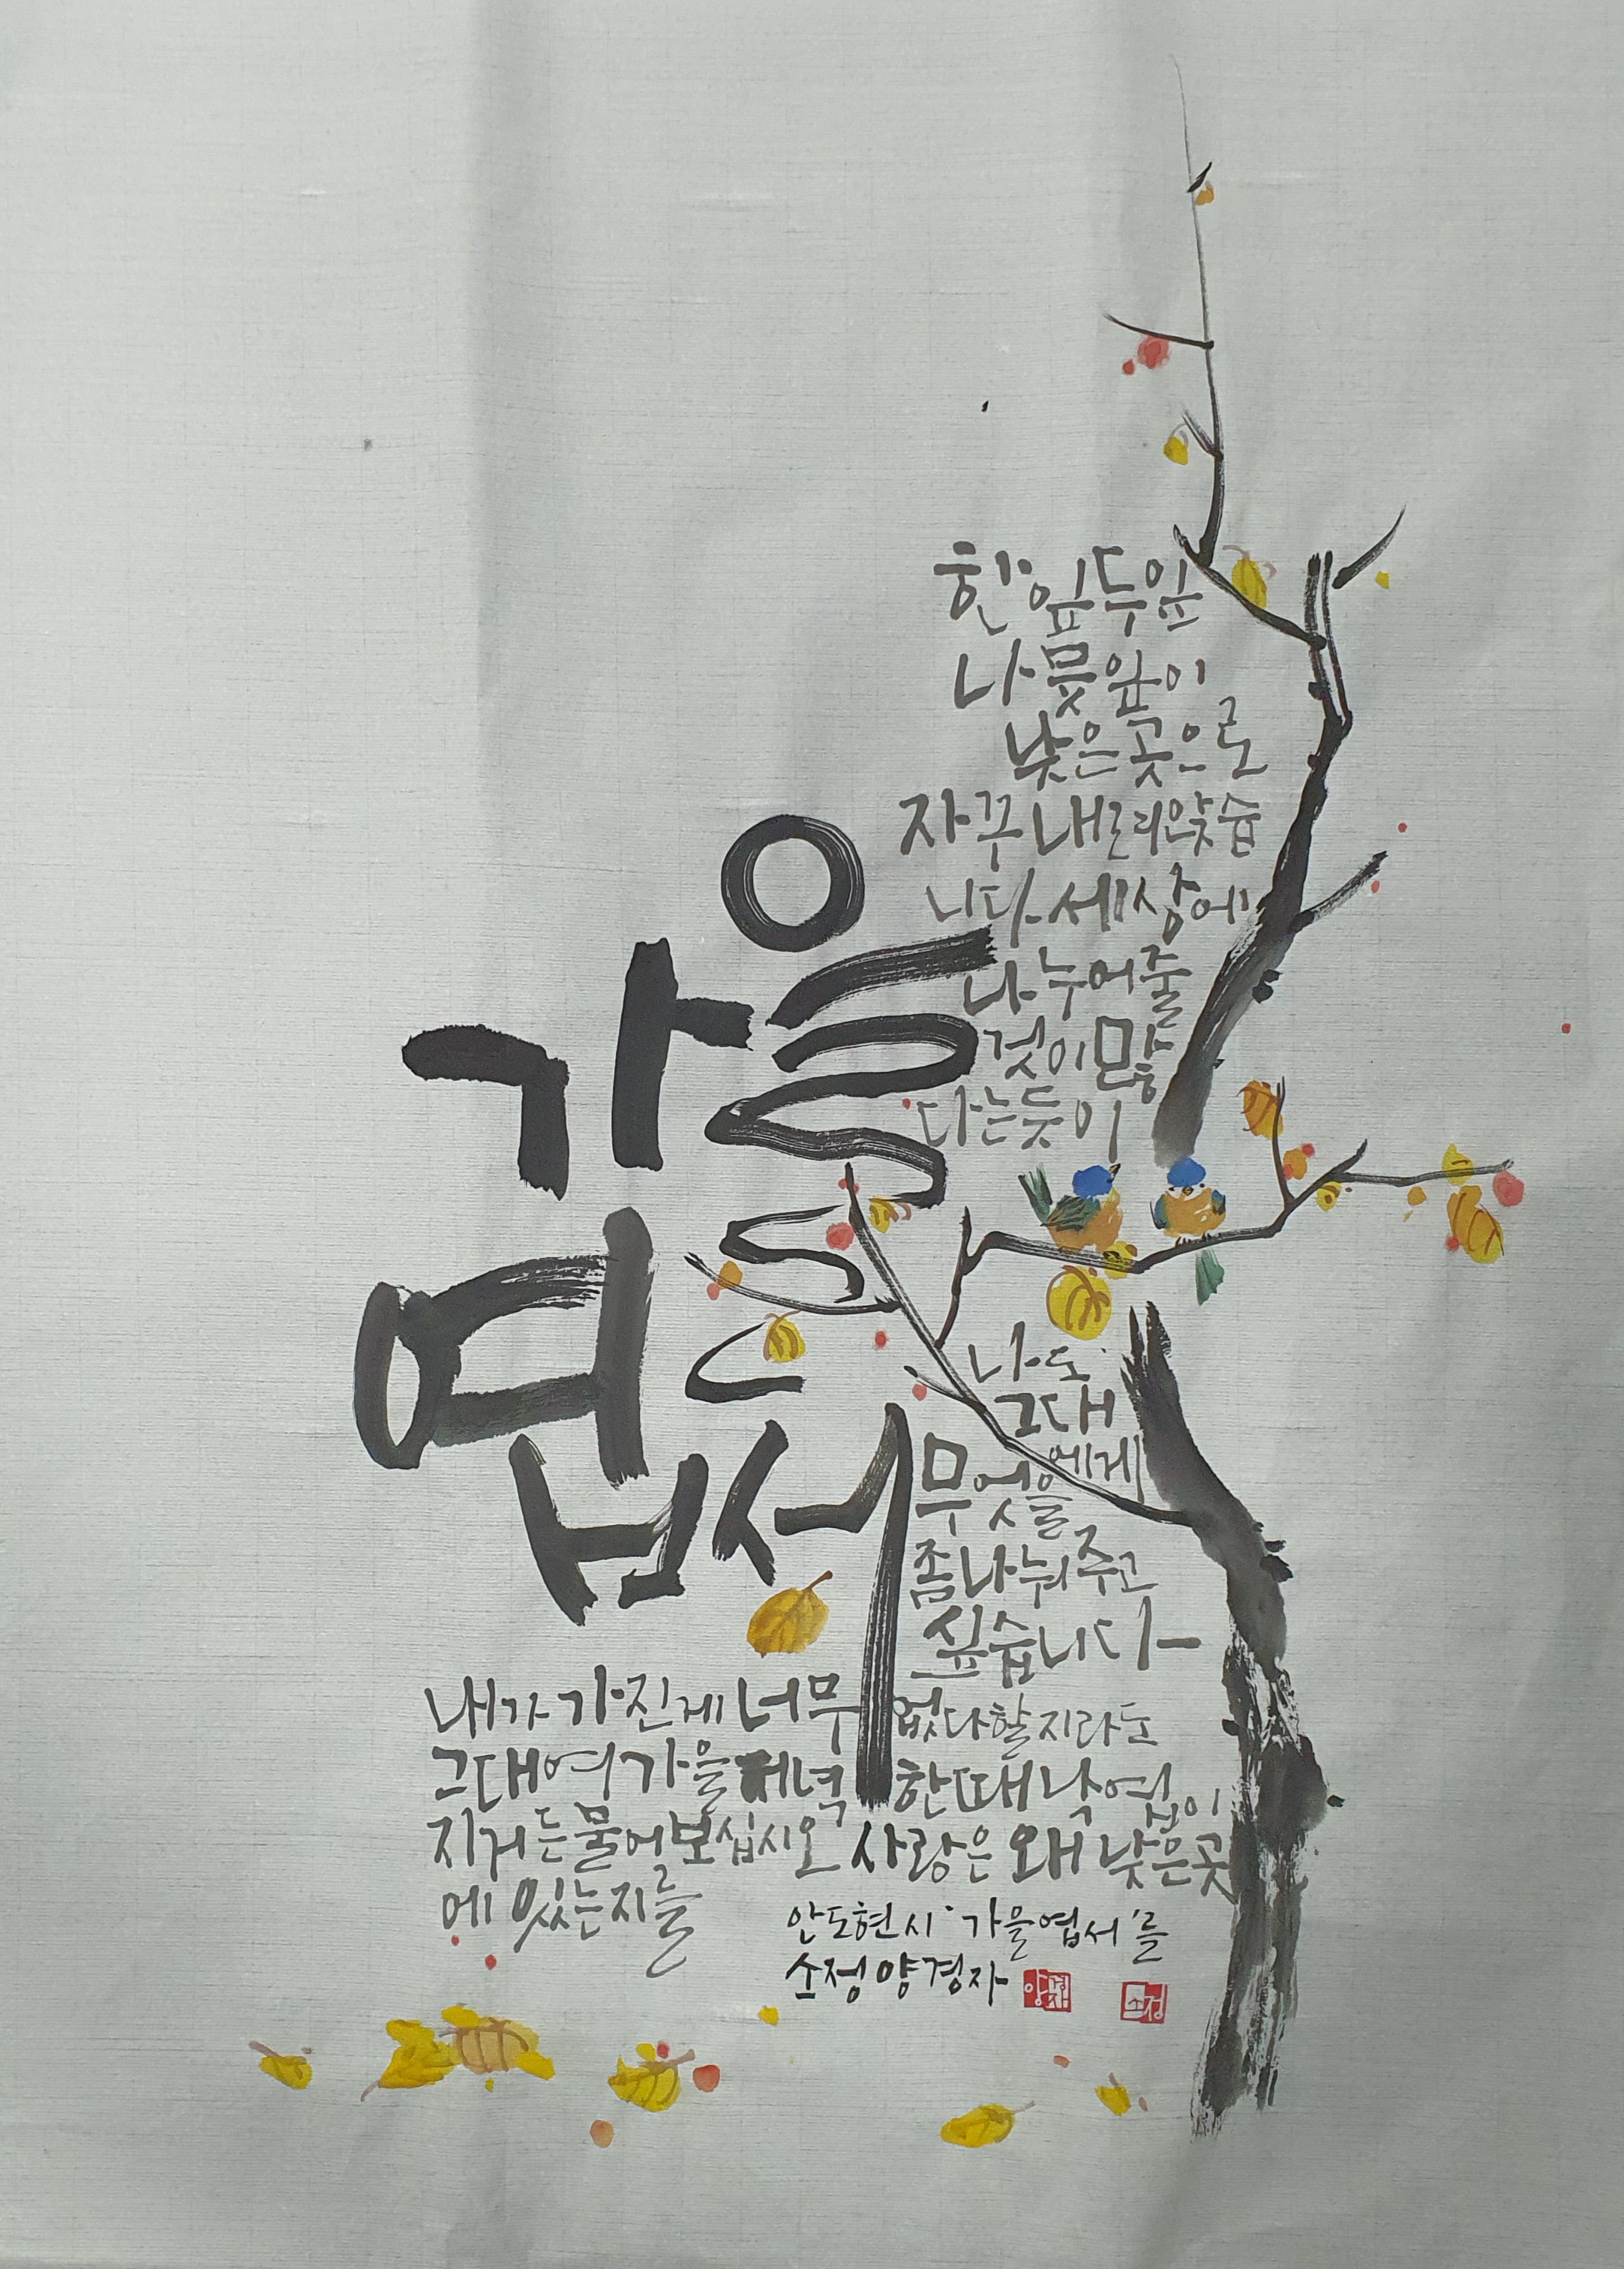 가을
엽서
한 잎 두 잎
나뭇잎이
낮은 곳으로
자꾸 내려앉습
니다 세상에
나누어줄
것이 많
다는 듯이
나도
그대
에게
무엇을
좀 나눠주고
싶습니다
내가 가진 게 너무 없다 할지라도
그대여 가을 저녁 한때 낙엽이
지거든 물어보십시오 사랑은 왜 낮은 곳
에 있는지를
안도현 시 '가을엽서'를
소정 양경자
양경자
소정